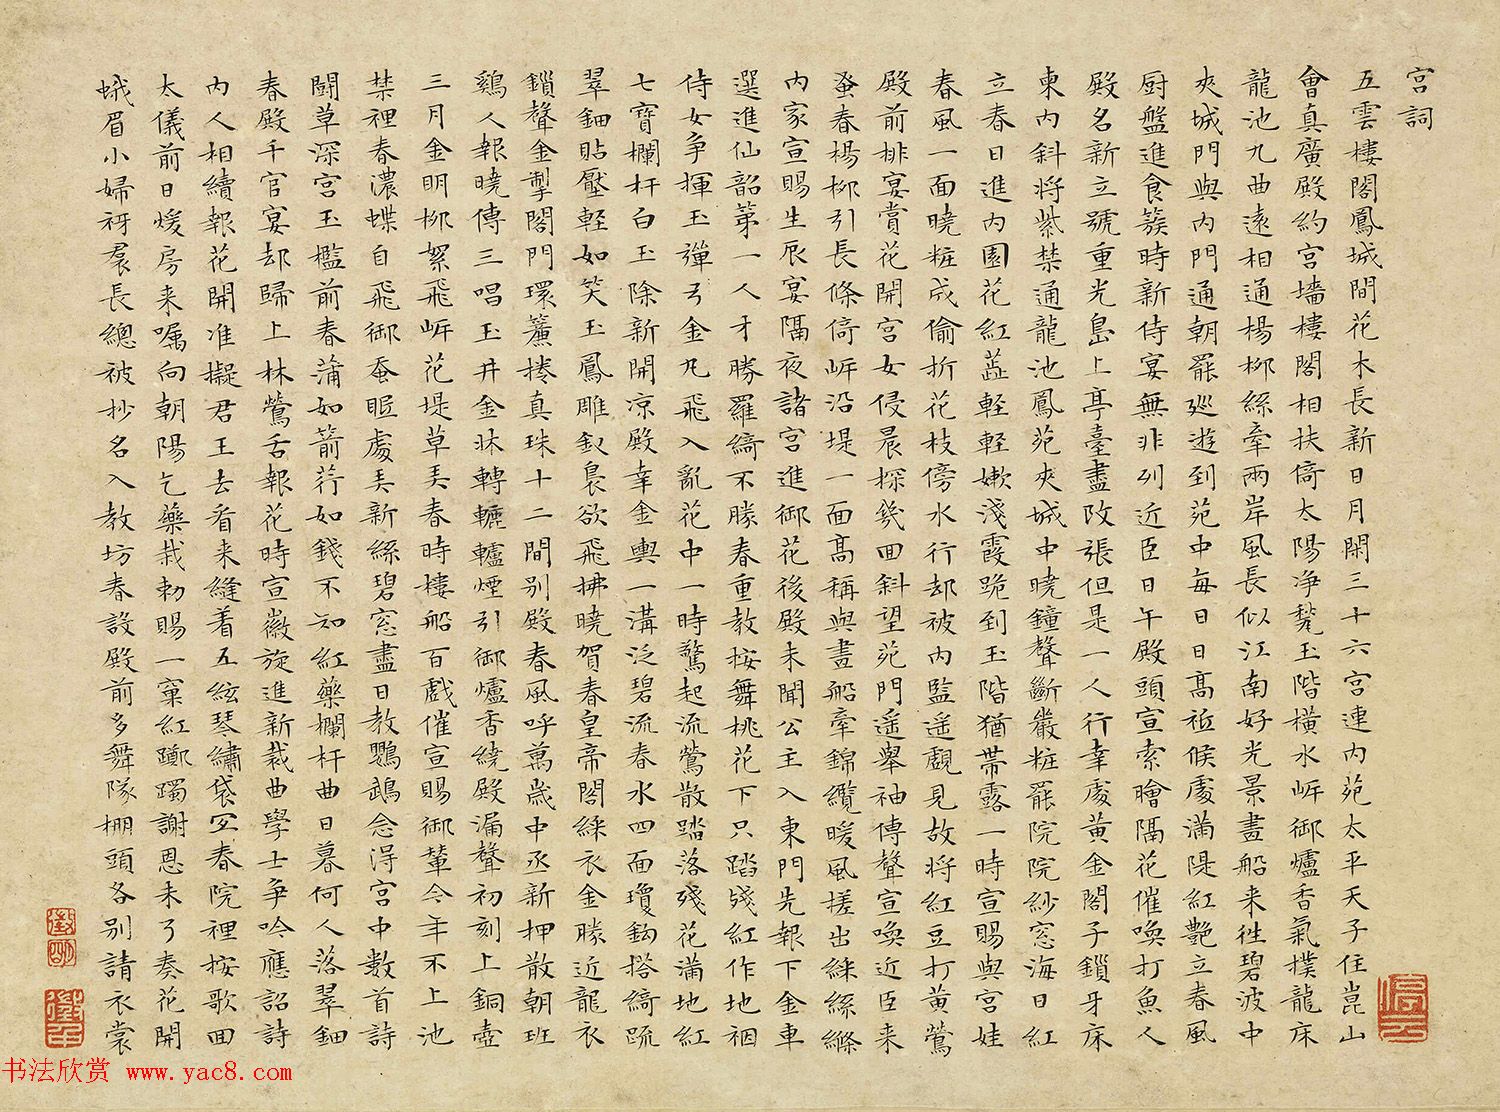 宮詞
五雲樓閣鳳城間花木長新日月閑三十六宮連內苑太平天子住崑山
會真廣殿約宮墻樓閣相扶倚太陽淨甃玉階橫水岍御爐香氣撲龍床
龍池九曲遠相通楊柳絲牽兩岸風長似江南好光景畫船来往碧波中
夾城門與內門通朝罷廵遊到苑中每日日高祗候處滿隄紅艷立春風
厨盤進食簇時新侍宴無非列近臣日午殿頭宣索鱠隔花催喚打魚人
殿名新立號重光島上亭臺盡改張但是一人行幸處黃金閣子鎖牙床
東內斜将紫禁通龍池鳳苑夾城中曉鐘聲斷嚴粧罷院院紗窓海日紅
立春日進內園花紅蕋輕輕嫰淺霞跪到玉階猶帶露一時宣賜與宮娃
春風一面曉粧成偷折花枝傍水行却被內監遥覷見故将紅豆打黃鶯
殿前排宴賞花開宮女侵晨探幾回斜望苑門遥舉袖傳聲宣喚近臣来
蚤春楊柳引長條倚岍沿堤一面高稱與畫船牽錦纜暖風搓出綵絲絛
內家宣賜生辰宴隔夜諸宮進御花後殿未聞公主入東門先報下金車
選進仙韶第一人才勝羅綺不勝春重教按舞桃花下只踏殘紅作地裀
侍女争揮玉彈弓金丸飛入亂花中一時驚起流鶯散踏落殘花滿地紅
七寶欄杆白玉除新開凉殿幸金輿一溝泛碧流春水四面瓊鈎搭綺疏
翠鈿貼壓輕如笑玉鳳雕釵裊欲飛拂曉賀春皇帝閣綵衣金勝近龍衣
鎖聲金掣閣門環簾捲真珠十二間別殿春風呼萬歲中丞新押散朝班
鷄人報曉傳三唱玉井金牀轉轆轤煙引御爐香繞殿漏聲初刻上銅壺
三月金明柳絮飛岍花堤草弄春時樓船百戲催宣賜御輦今年不上池
禁裡春濃蝶自飛御蚕眠處弄新絲碧窓盡日教鸚鵡念淂宮中數首詩
鬪草深宮玉檻前春蒲如箭荇如錢不知紅藥欄杆曲日暮何人落翠鈿
春殿千官宴却歸上林鶯舌報花時宣徽旋進新裁曲學士争吟應詔詩
內人相續報花開准擬君王去看来縫着五絃琴繡袋宐春院裡按歌回
太儀前日煖房来嘱向朝陽乞藥栽勅賜一窠紅躑躅謝恩未了奏花開
蛾眉小婦袴羣長總被抄名入教坊春設殿前多舞隊棚頭各別請衣裳
徵明
書法欣賞 www.yac8.com